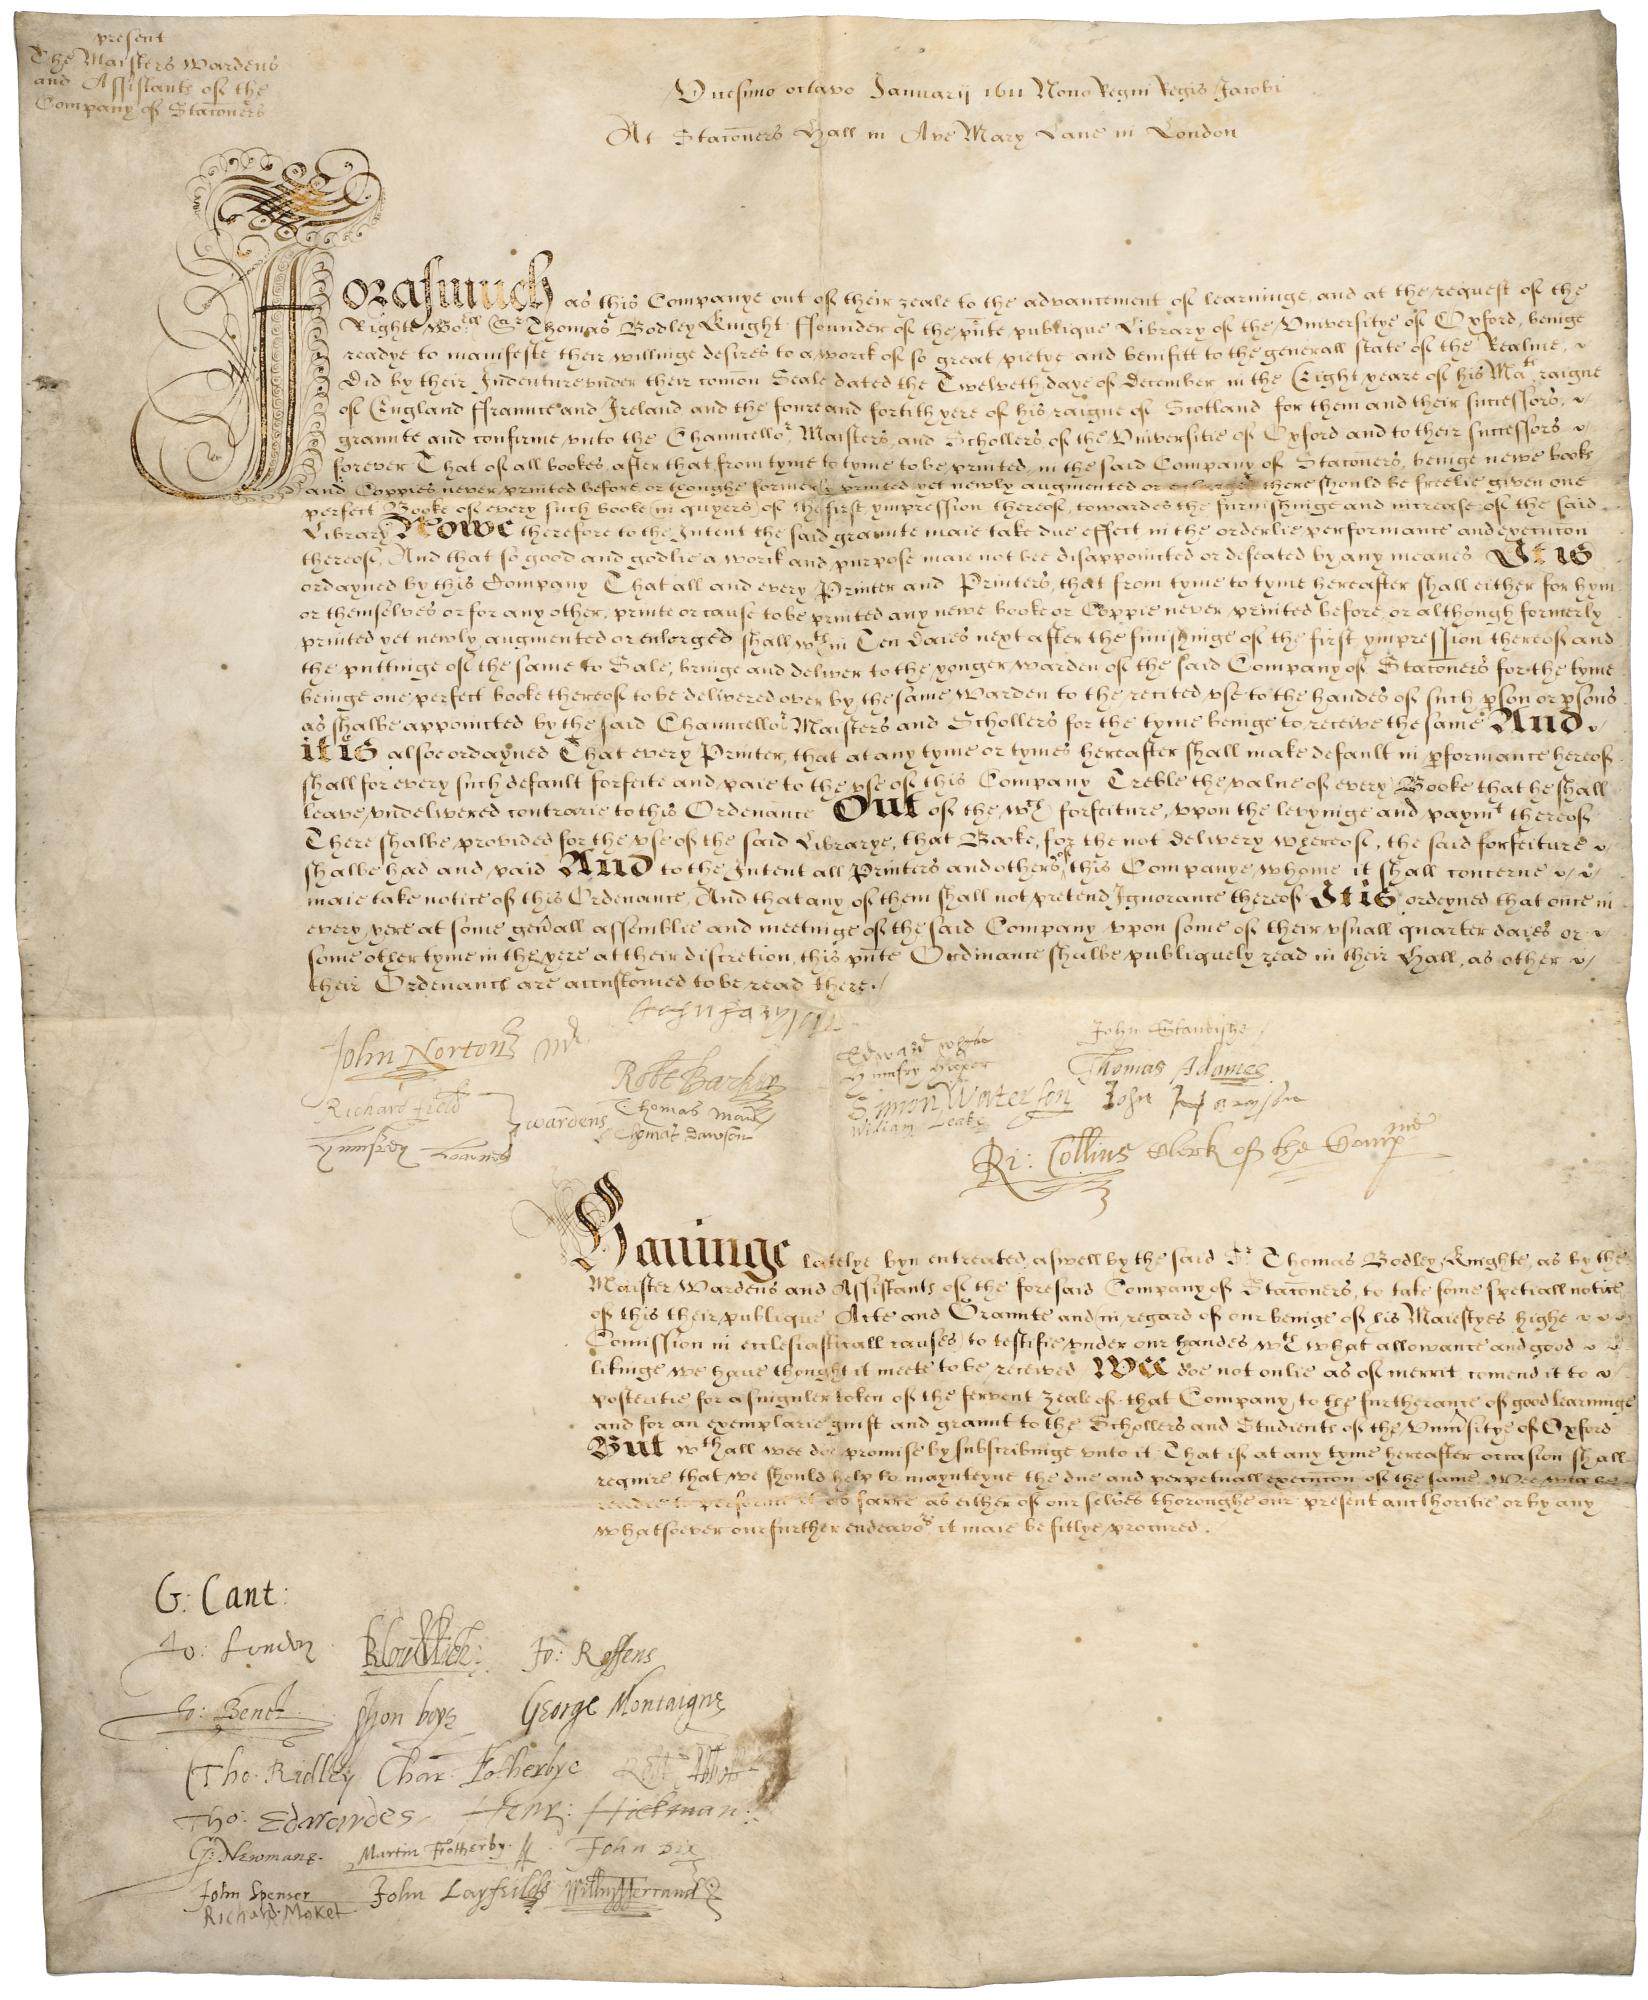 present
The Maisters Wardens
and Assistants of the
Company of Stac̄oners
Vicesimo octavo Januarij 1611 Nono Regni Regis Jacobi
At Stac̄oners Hall in Ave Mary Lane in London
Forasmuch as this Companye out of their zeale to the advancement of learninge, and at the request of the
Right Wo:ll Sr Thomas Bodley Knight ffounder of the pn̄te publique Library of the Vniversitye of Oxford, beinge
readye to manifeste their willinge desires to a worck of so great pietye and benifitt to the generall state of the Realme,
did by their Indenture vnder their com̄on Seale dated the Twelveth daye of December in the Eight yeare of his Mats raigne
of England ffraunce and Ireland and the foure and fortith yere of his raigne of Scotland for them and their successors,
graunte and confirme vnto the Chauncellor, Maisters, and Schollers of the Vniversitie of Oxford and to their successors
forever That of all bookes after that from tyme to tyme to be printed in the said Company of Stac̄oners, beinge newe books
and Coppies never printed before or thoughe formerly printed yet newly augmented or enlarged there should be freelie given one
perfect Booke of every such booke (in quyers) of the first ympression thereof, towardes the furnishinge and increase of the said
Library Nowe therefore to the Intent the said graunte maie take due effect in the orderlie performance and execuc̄on
thereof, And that so good and godlie a worck and purpose maie not bee disappointed or defeated by any meanes It is
ordayned by this Company That all and every Printer and Printers, that from tyme to tyme hereafter shall either for hym
or themselves or for any other, printe or cause to be printed any newe booke or Coppie never printed before, or although formerly
printed yet newly augmented or enlarged shall wthin Ten daies next after the finishinge of the first ympression thereof and
the puttinge of the same to Sale, bringe and deliver to the yonger warden of the said Company of Stac̄oners for the tyme
beinge one perfect booke thereof to be delivered over by the same Warden to the recited vse to the handes of such pson or psons
as shalbe appointed by the said Chauncellor Maisters and Schollers for the tyme beinge to receive the same And
it is alsoe ordayned That every Printer, that at any tyme or tymes hereafter shall make default in pformance hereof
shall for every such default forfeite and paie to the vse of this Company Treble the value of every Booke that he shall
leave vndelivered contrarie to this Ordenance Out of the wch forfeiture, vpon the levyinge and paymt thereof
There shalbe provided for the vse of the said Librarye, that Booke, for the not delivery whereof, the said forfeiture
shalbe had and paid And to the Intent all Printers and others of this Companye whome it shall concerne
maie take notice of this Ordenance, And that any of them shall not pretend Ignorance thereof It is ordeyned that once in
every yere at some gen̄all assemblie and meetinge of the said Company vpon some of their vsuall quarter daies or
some other tyme in the yere at their discretion, this pn̄te Ordinance shalbe publiquely read in their Hall, as other
their Ordenances are accustomed to be read there.
John Norton Mr
Richard Field
Humfrey Lownes
wardens
Robt Barker
Thomas Man
Thomas Dawson
Edward White
Humfry Hooper
Simon Waterson
William Leake
John Standishe
Thomas Adames
John Harryson
Ri: Collins Clerk of the Compnie
Havinge latelye byn entreated, aswell by the said Sr Thomas Bodley Knighte, as by the
Maister Wardens and Assistants of the foresaid Company of Stac̄oners, to take some speciall notice
of this their publique Acte and Graunte and (in regard of our beinge of his Maiestyes highe
Comission in ecclesiasticall causes) to testifie vnder our handes wth what allowance and good
likinge we have thought it meete to be received Wee doe not onlie as of merrit comend it to
posteritie for a singuler token of the fervent zeale of that Company to the furtherance of good learninge
and for an exemplarie guift and graunt to the Schollers and Studients of the Vniusitye of Oxford
But wthall wee doe promise by subscribinge vnto it That if at any tyme hereafter occasion shall
require that we should help to maynteyne the due and perpetuall execuc̄on of the same Wee will be
readie to performe it as farre as either of our selves thoroughe our present aucthoritie or by any
whatsoever our further endeavors it maie be fitlye procured.
G: Cant:
Jo: London
Jo: Roffens
Jo: Benet
Jhon boys
George Montaigne
Tho: Ridley
Char: Fotherbye
Robt Abbott
Tho: Edwardes
Henr: Hickman:
G: Newmane.
Martin Fotherby.
John Dix
John Spenser
John Layfeilde
Willm Ferrand
Richard Moket